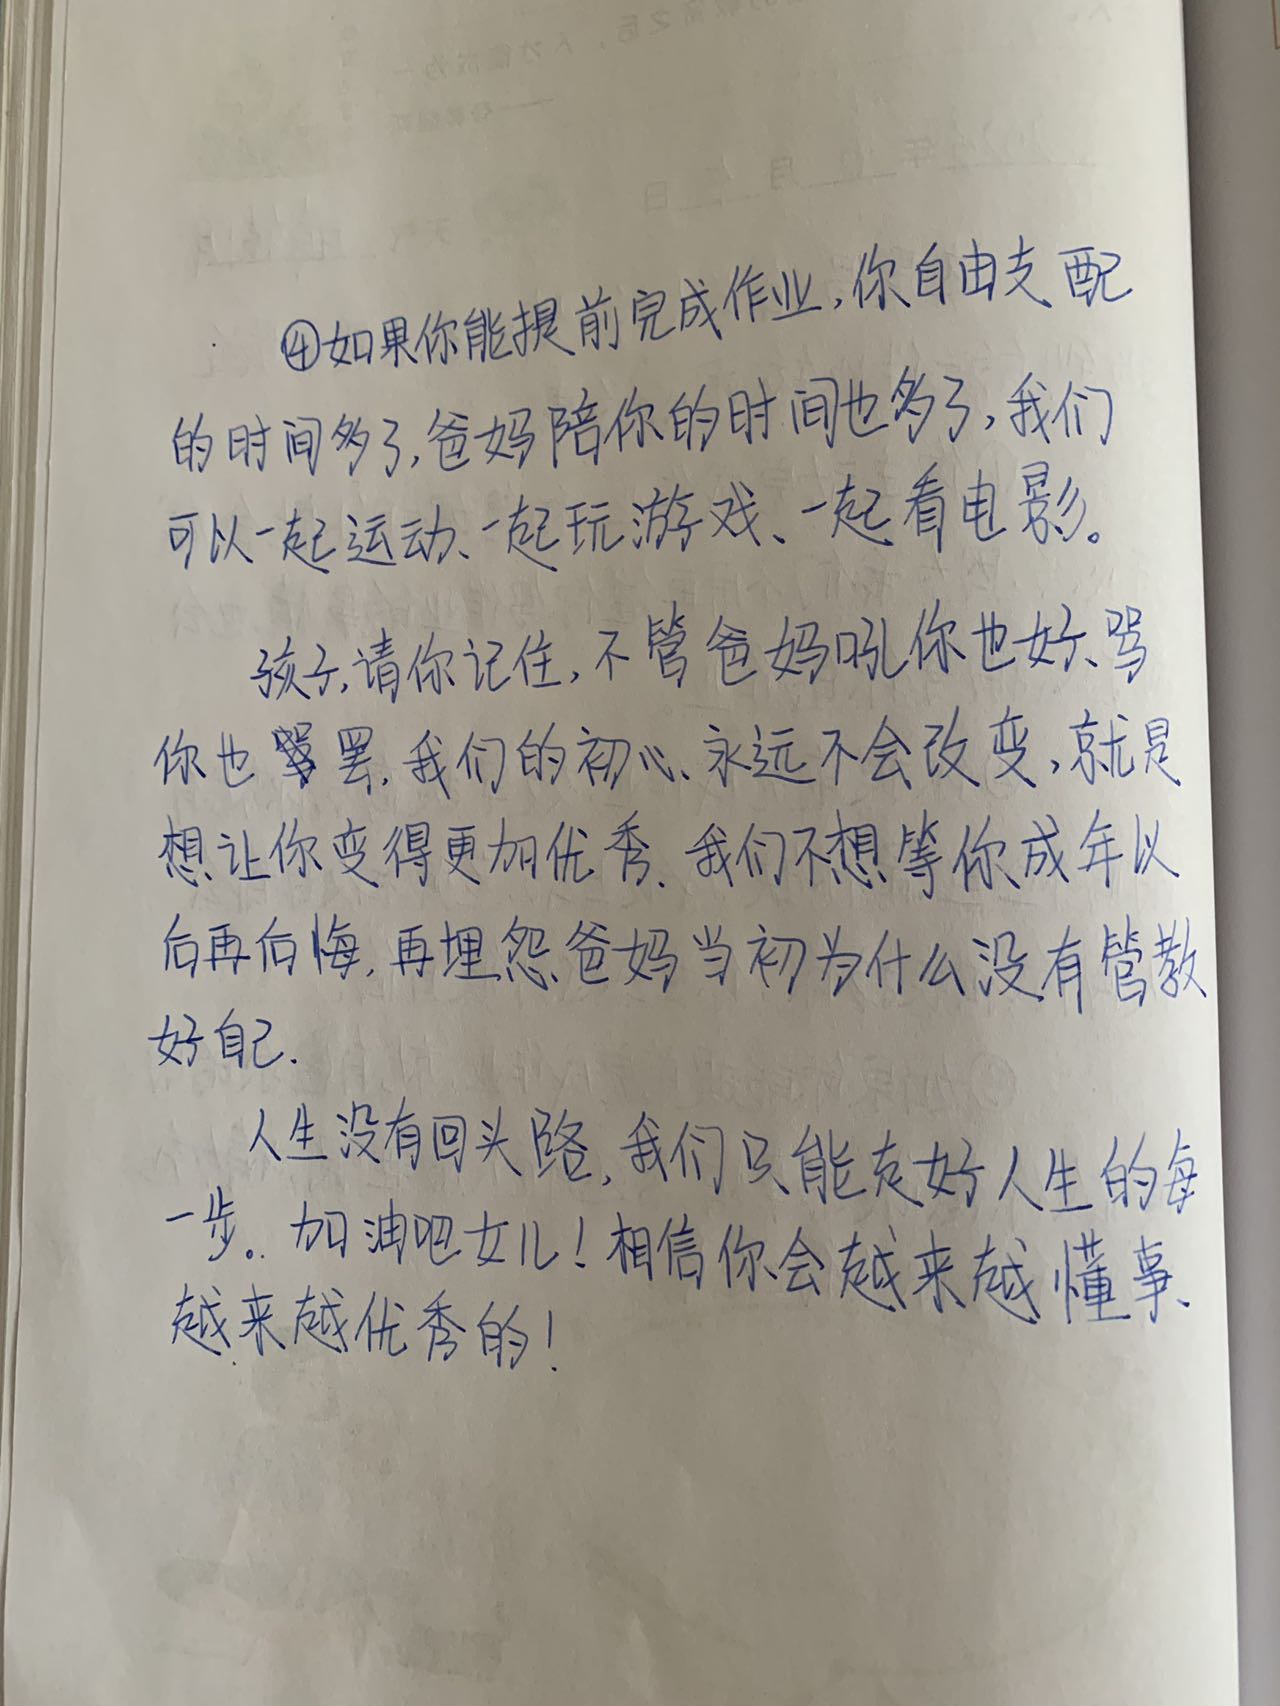 ④如果你能提前完成作业,你自由支配
的时间多了,爸妈陪你的时间也多了,我们
可以一起运动、一起玩游戏、一起看电影。
孩子,请你记住,不管爸妈吼你也好、骂
你也罢,我们的初心、永远不会改变,就是
想让你变得更加优秀、我们不想等你成年以
后再后悔,再埋怨爸妈当初为什么没有管教
好自己.
人生没有回头路,我们只能走好人生的每
一步。加油吧女儿!相信你会越来越懂事、
越来越优秀的!